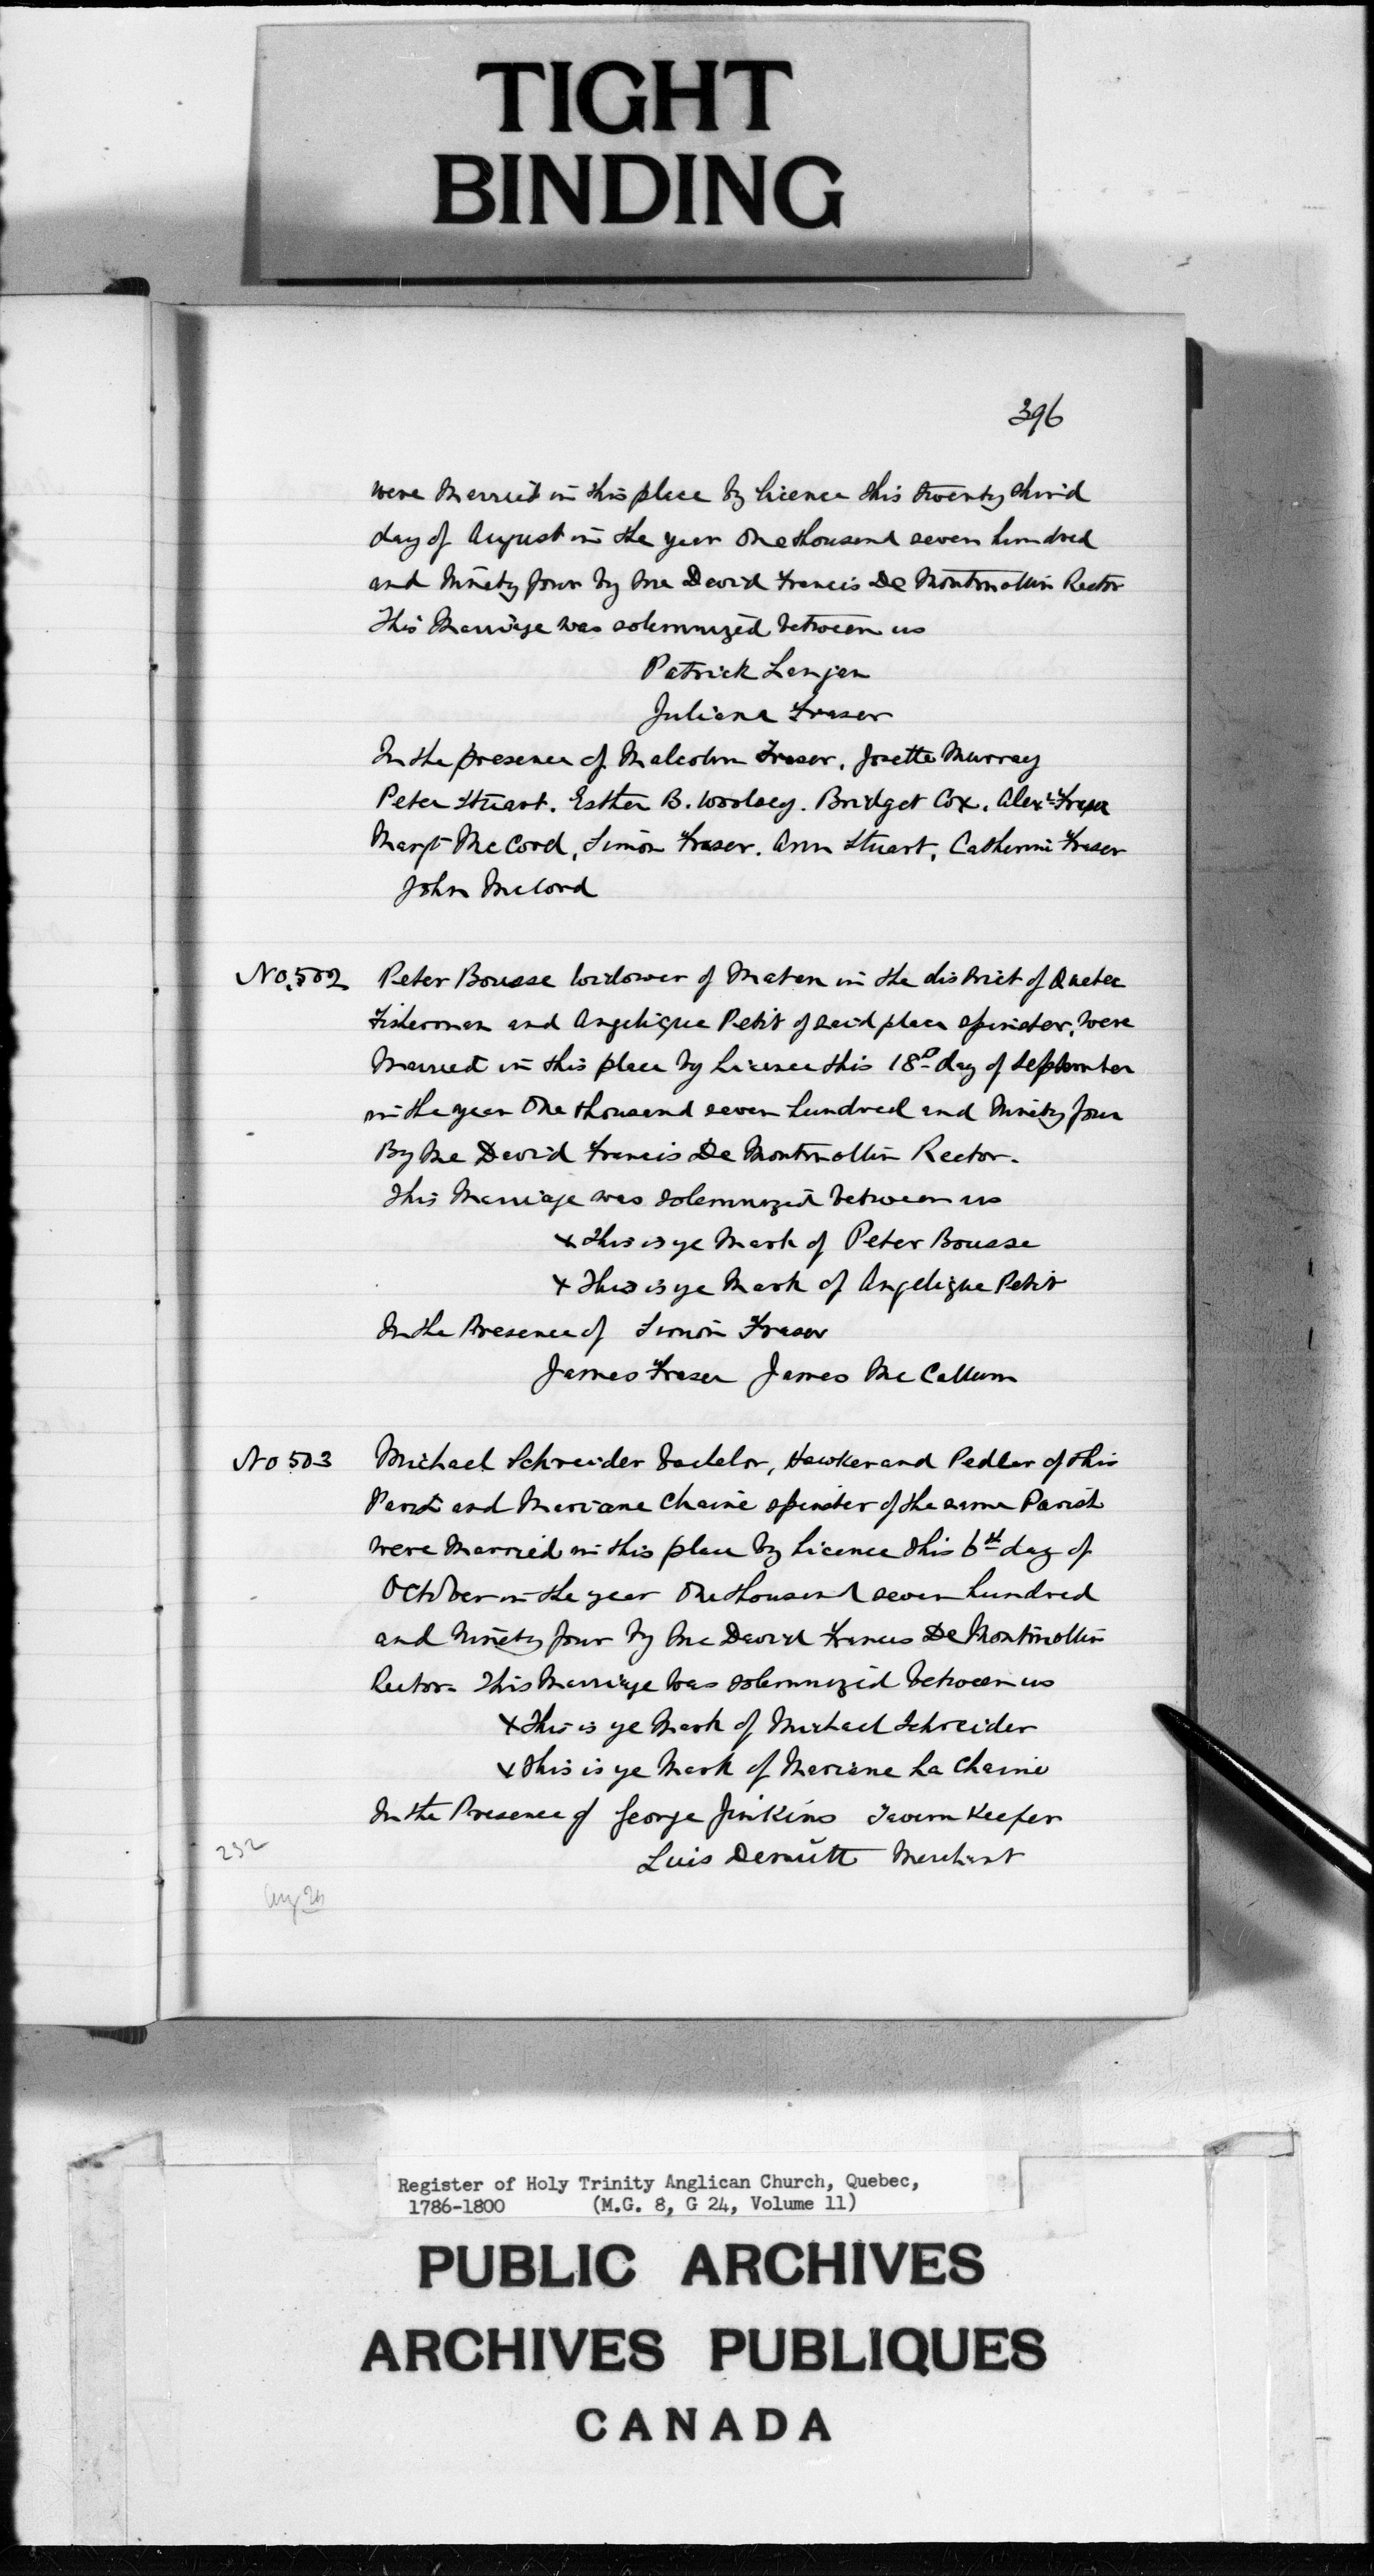 TIGHT
BINDING
396
were Married in this place by licence this twenty third
day of August in the year One thousand seven hundred
and Ninety four by me David Francis De Montmollin Rector
This Marriage was solemnized between us
Patrick Langan
Juliana Fraser
In the presence of Malcolm Fraser, Josette Murray
Peter Stuart. Esther B. Woolsey. Bridget Cox. Alexr Fraser
Margt McCord, Simon Fraser. Ann Stuart, Catherine Fraser
John McCord
No. 502 Peter Bousse widower of Matan in the district of Quebec
Fisherman and Angelique Petit of said place spinster, were
Married in this place by Licence this 18th day of September
in the year One thousand seven hundred and Ninety four
By Me David Francis De Montmollin Rector.
This Marriage was solemnized between us
x This is ye Mark of Peter Bousse
x This is ye Mark of Angelique Petit
In the Presence of Simon Fraser
James Fraser James McCallum
No 503 Michael Schreider Bachelor, Hawker and Pedler of this
Parish and Mariane Chaine spinster of the same Parish
were Married in this place by licence this 6th day of
October in the year One thousand seven hundred
and Ninety four by Me David Francis De Montmollin
Rector. This Marriage was solemnized between us
x This is ye Mark of Michael Schreider
x This is ye Mark of Mariane La Chaine
In the Presence of George Jinkins Tavern Keeper
Luis Dermitt Merchant
232
Aug 26
Register of Holy Trinity Anglican Church, Quebec,
1786-1800 (M.G. 8, G 24, Volume 11)
PUBLIC ARCHIVES
ARCHIVES PUBLIQUES
CANADA